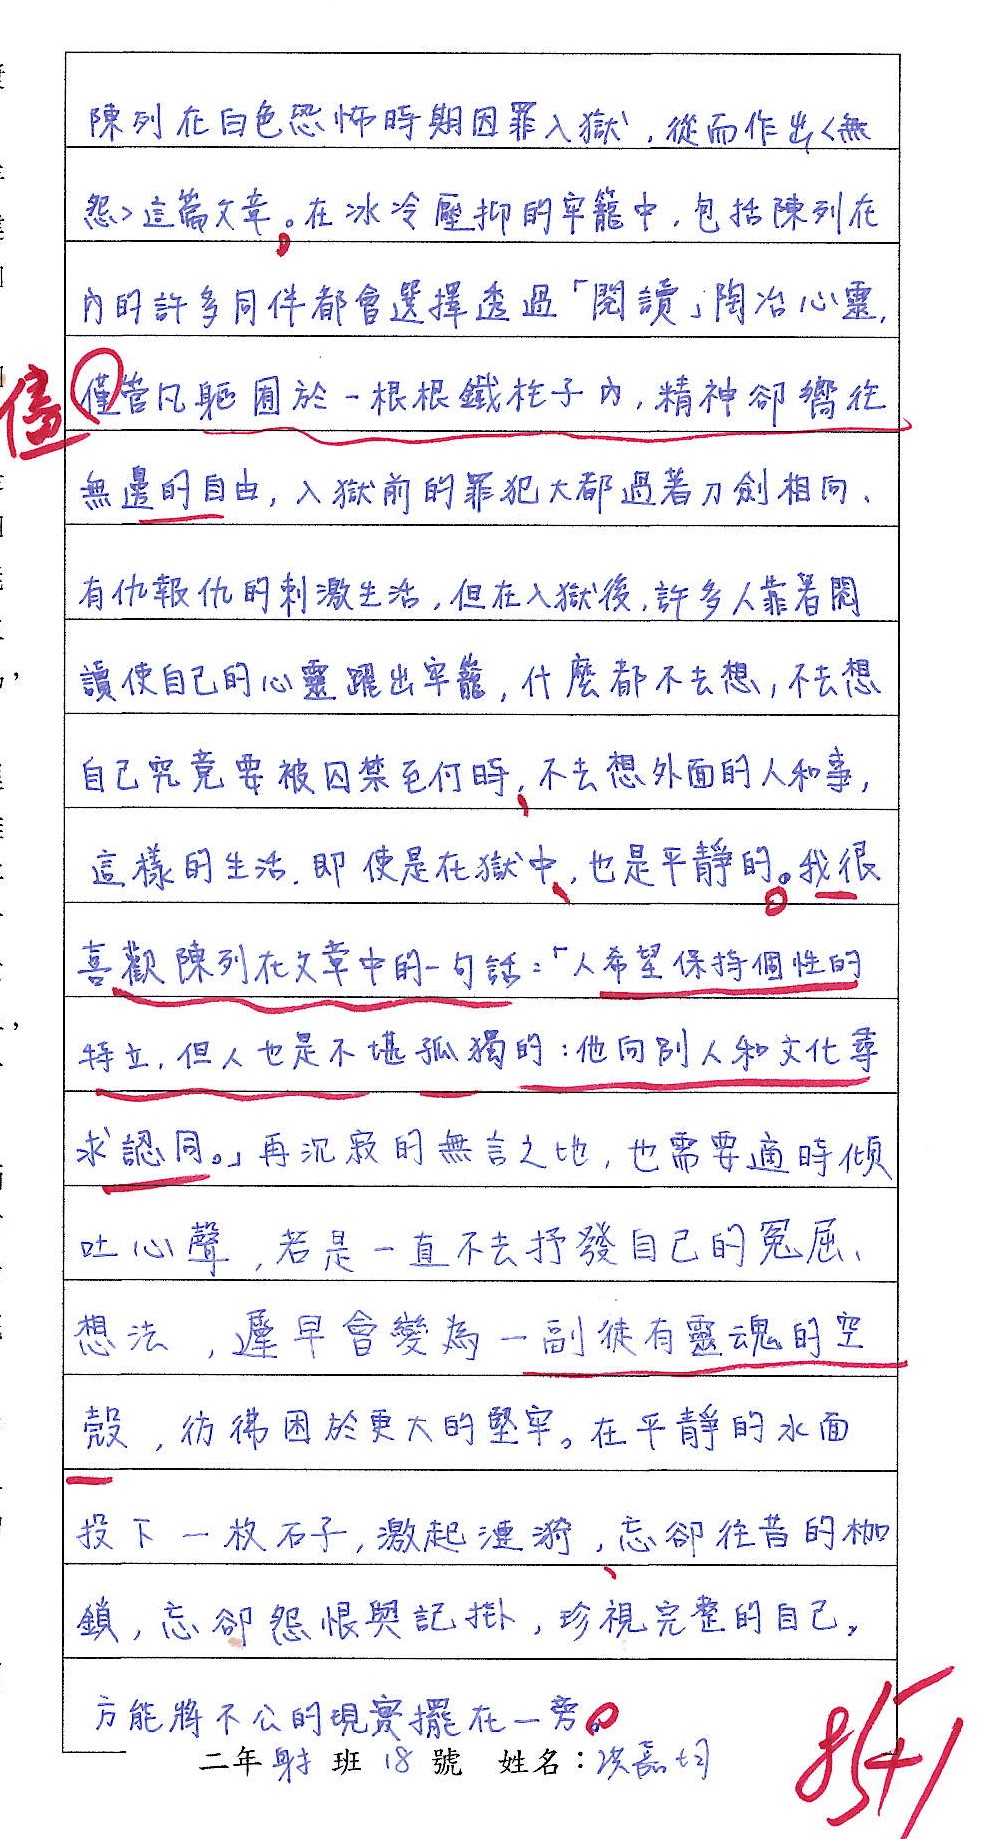 陳列在白色恐怖時期因罪入獄，從而作出〈無
怨〉這篇文章。在冰冷壓抑的牢籠中，包括陳列在
內的許多同伴都會選擇透過「閱讀」陶冶心靈，
僅管凡軀囿於一根根鐵柱子內，精神卻嚮往
儘
無邊的自由，入獄前的罪犯大都過著刀劍相向、
有仇報仇的刺激生活，但在入獄後，許多人靠著閱
讀使自己的心靈躍出牢籠，什麼都不去想，不去想
自己究竟要被囚禁至何時，不去想外面的人和事，
這樣的生活，即使是在獄中，也是平靜的。我很
喜歡陳列在文章中的一句話：「人希望保持個性的
特立，但人也是不堪孤獨的：他向別人和文化尋
求認同。」再沉寂的無言之地，也需要適時傾
吐心聲，若是一直不去抒發自己的冤屈、
想法，遲早會變為一副徒有靈魂的空
殼，彷彿困於更大的堅牢。在平靜的水面
投下一枚石子，激起漣漪，忘卻往昔的枷
鎖，忘卻怨恨與記掛，珍視完整的自己，
方能將不公的現實擺在一旁。
二年射班18號 姓名：
85+1